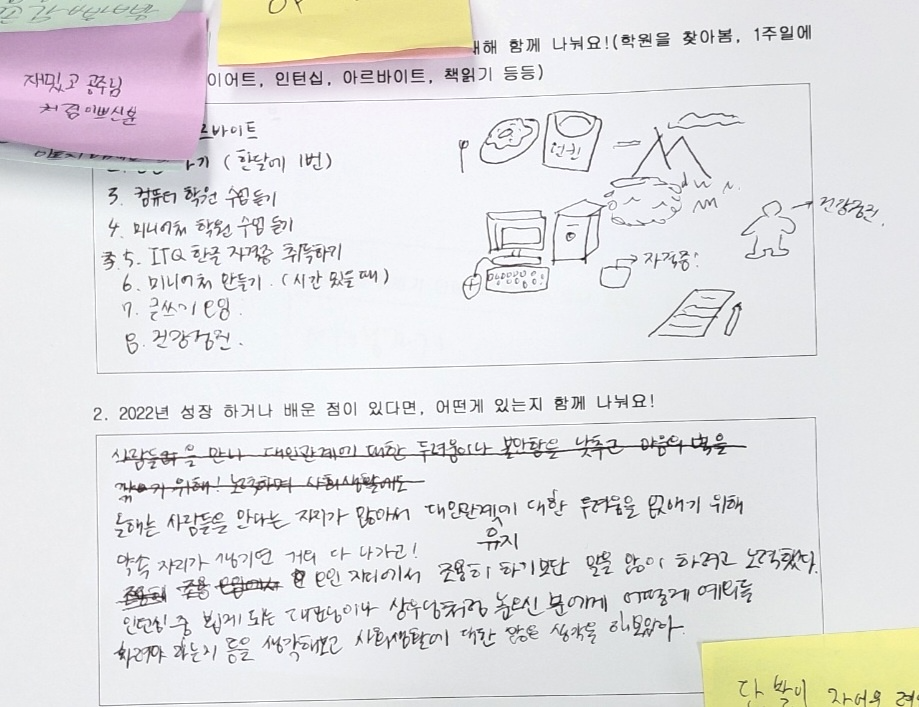 재밌고 공주님
처럼 이쁘신분
대해 함께 나눠요!(학원을 찾아봄, 1주일에
이어트, 인턴십, 아르바이트, 책읽기 등등)
르바이트
가기 (한달에 1번)
3. 컴퓨터 학원 수업듣기
4. 미니어처 학원 수업 듣기
5. ITQ 한글 자격증 취득하기
6. 미니어처 만들기. (시간 있을 때)
7. 글쓰기 모임
8. 건강정진.
헌혈
자격증!
건강증진.
2. 2022년 성장 하거나 배운 점이 있다면, 어떤게 있는지 함께 나눠요!
사람들을 만나 대인관계에 대한 두려움이나 불안함을 낮추고 마음의 벽을
위해! 노력하며 사회생활에도
올해는 사람들을 만나는 자리가 많아서 대인관계에 대한 두려움을 없애기 위해
유지
약속 자리가 생기면 거의 다 나가고!
모인 자리에서 조용히 하기보단 말을 많이 하려고 노력했다.
인턴십 중 뵙게 되는 대표님이나 상무님처럼 높으신 분에게 어떻게 예의를
차려야 하는지 등을 생각해보고 사회생활에 대한 많은 생각을 해보았다.